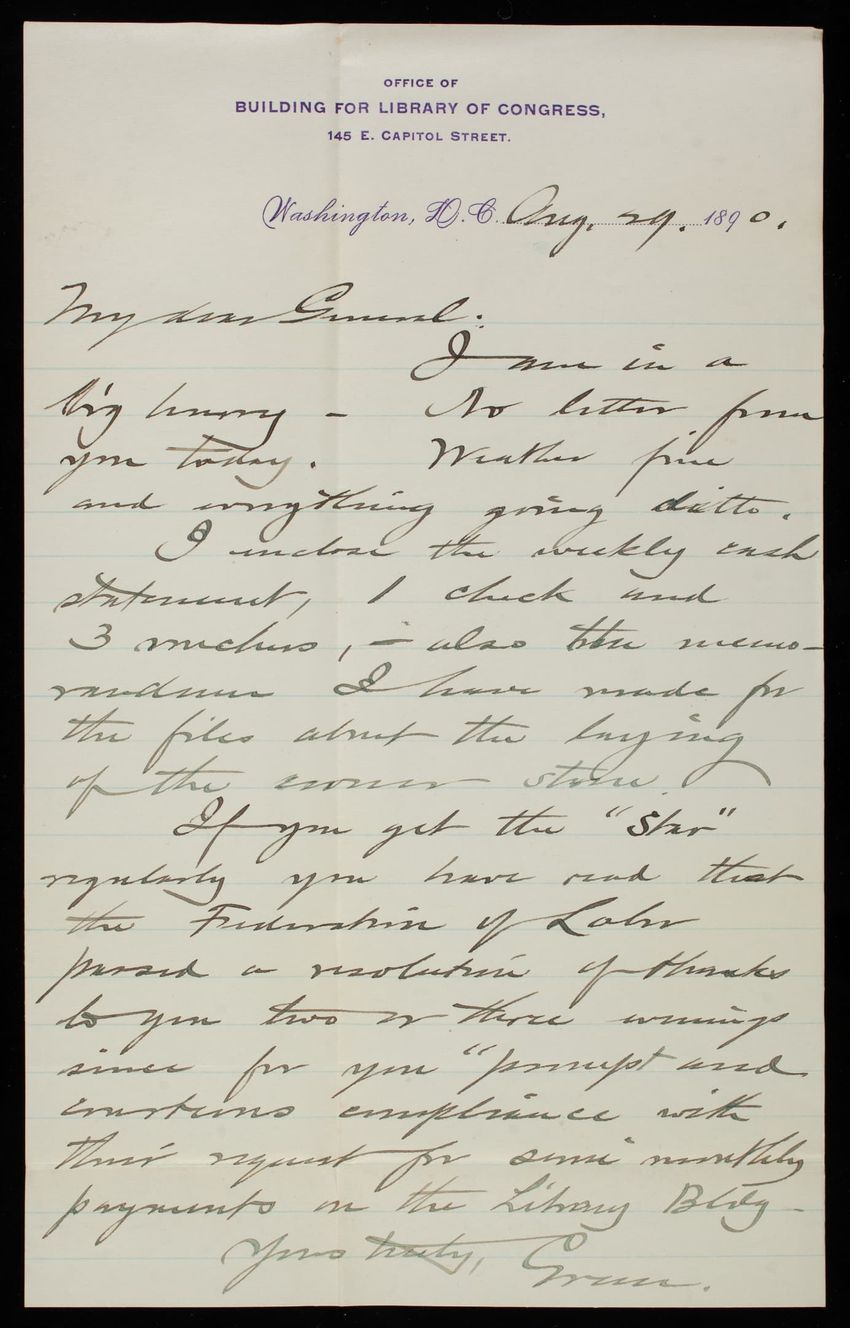 OFFICE OF
BUILDING FOR LIBRARY OF CONGRESS,
145 E. CAPITOL STREET.
Washington, D.C. Aug. 29. 1890.
My dear General:
I am in a
big hurry – No letter from
you today. Weather fine
and everything going ditto.
I enclose the weekly cash
statement, 1 check and
3 vouchers, – also the memo-
randum I have made for
the files about the laying
of the corner stone.
If you get the "Star"
regularly you have read that
the Federation of Labor
passed a resolution of thanks
to you two or three evenings
since for you "prompt and
courteous compliance with
their request for semi monthly
payments on the Library Bldg –
Yours truly, Green.